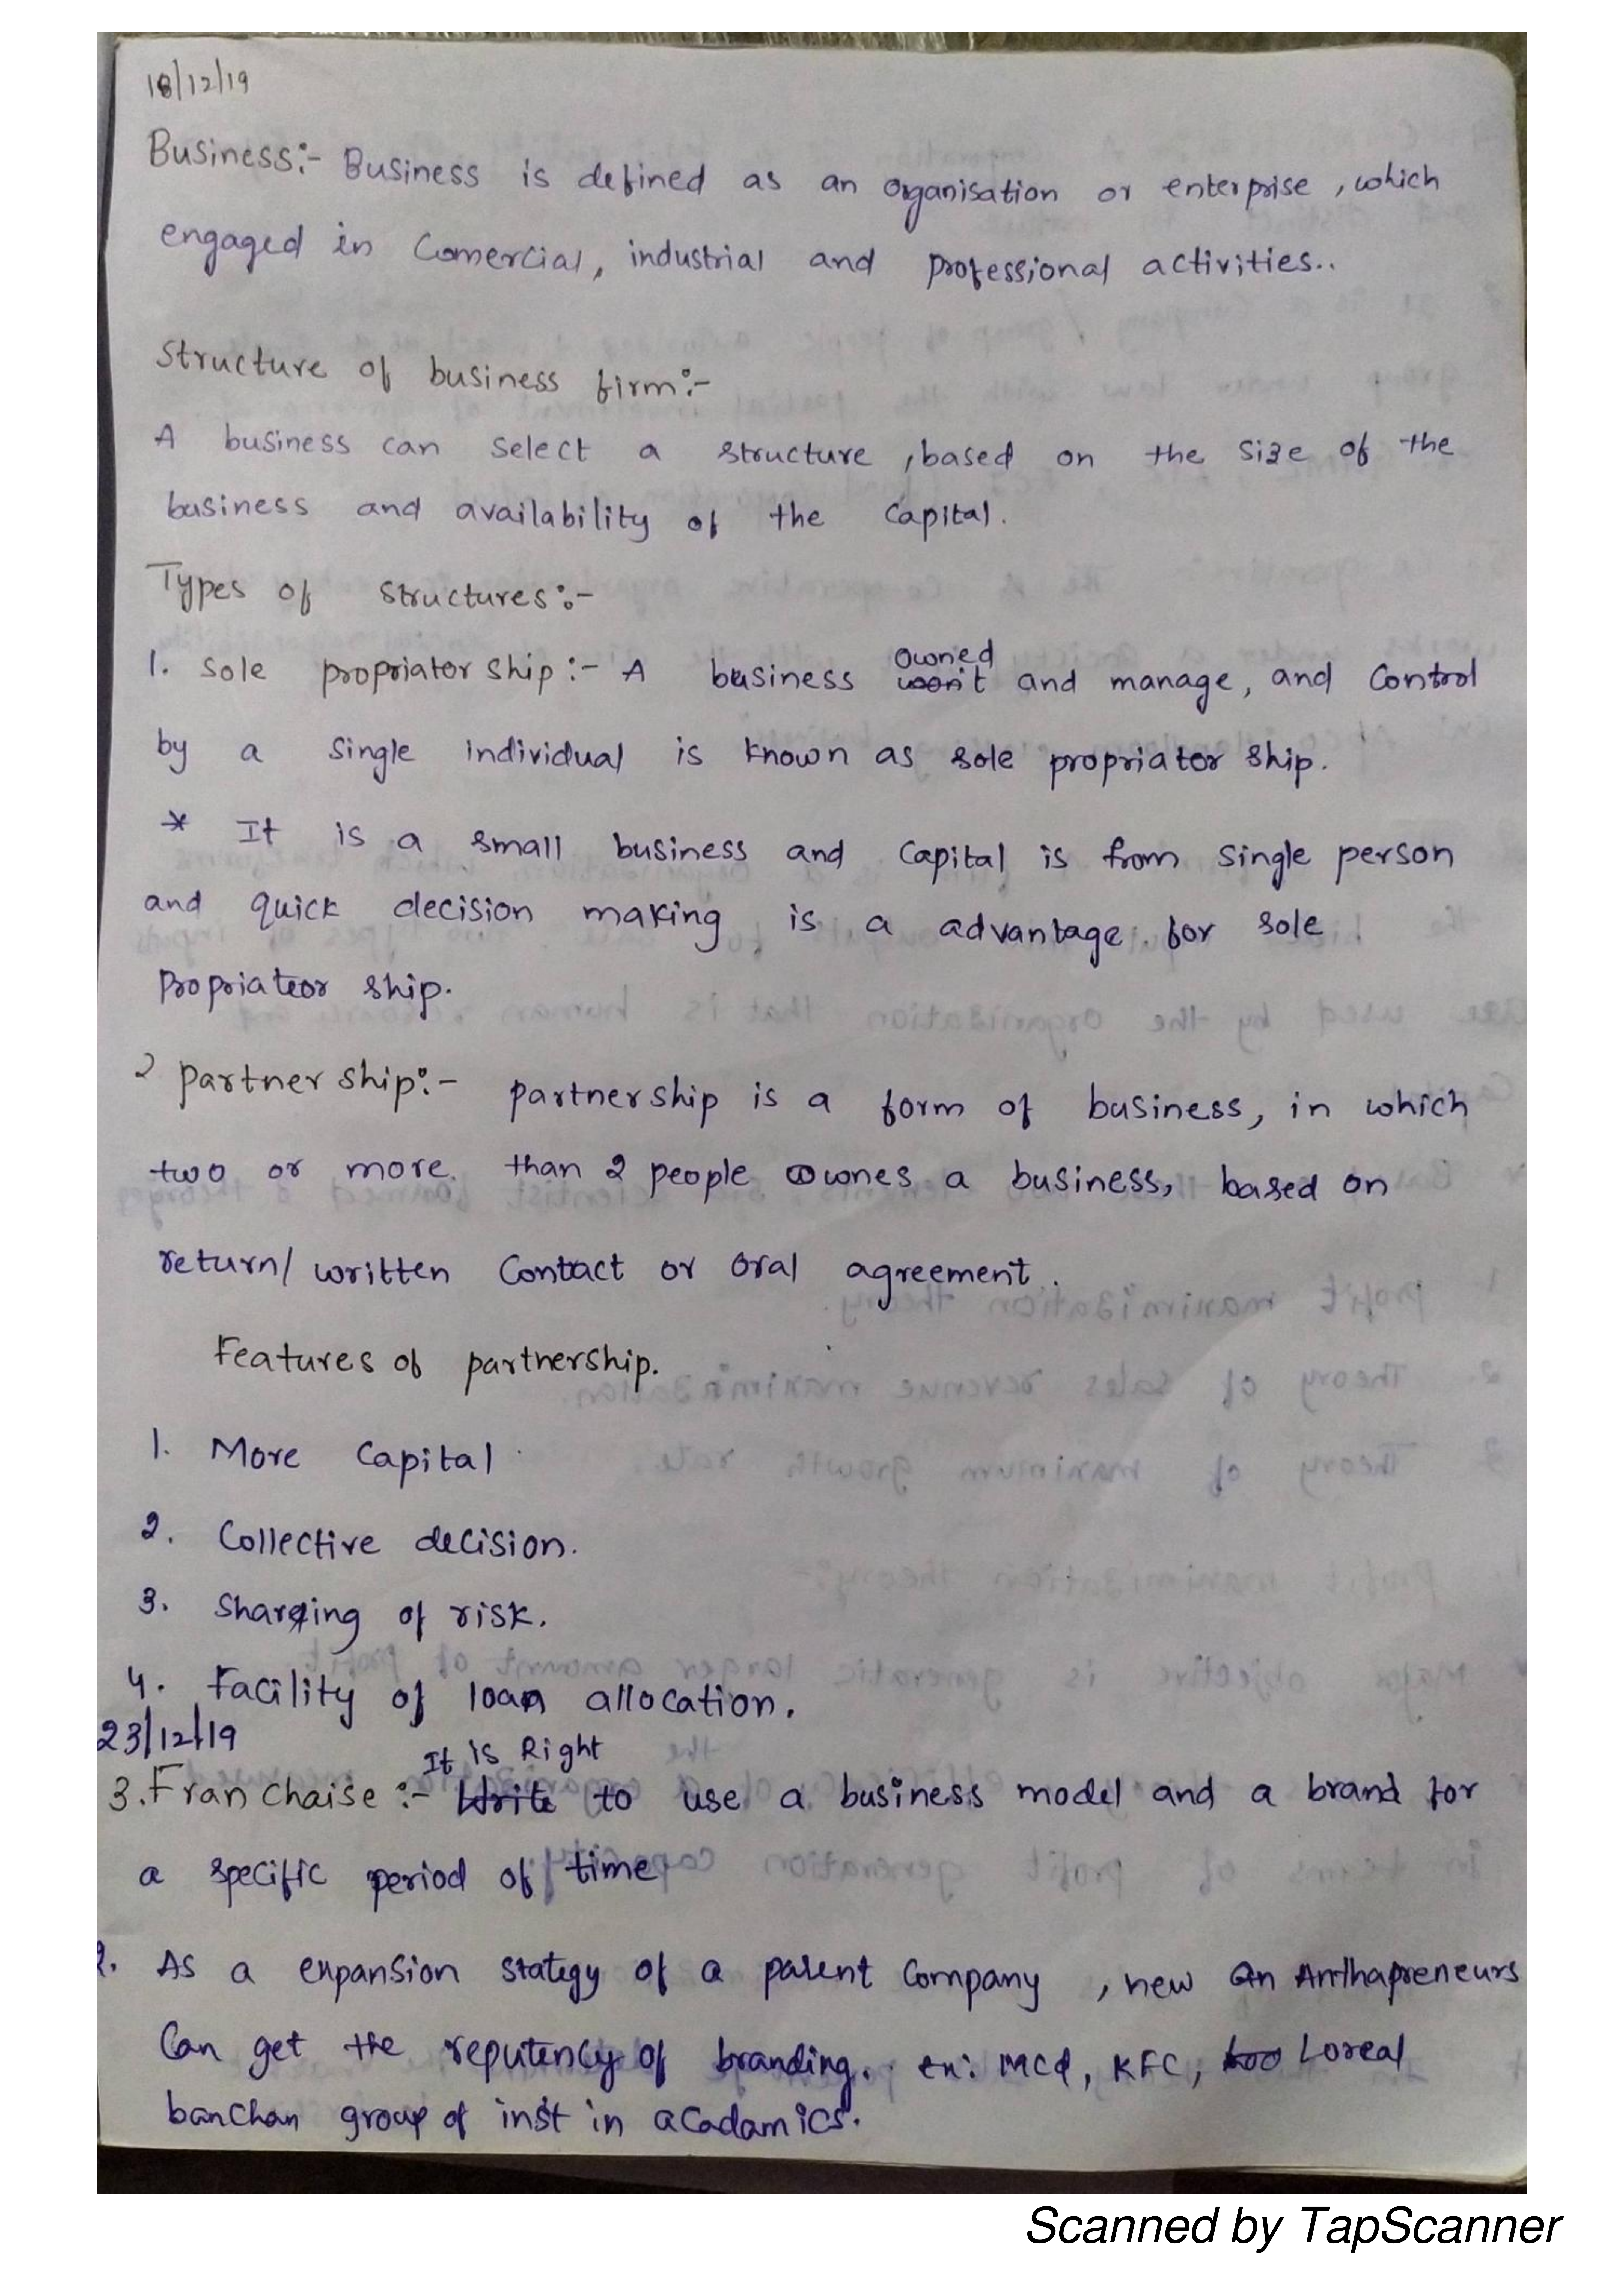 18/12/19
Business:- Business is defined as an organisation or enterprise, which
engaged in Comercial, industrial and professional activities..
Structure of business firm:-
A business can select a structure, based on the size of the
business and availability of the Capital.
Types of structures:-
1. Sole propriator ship:- A business owned and manage, and Control
by a single individual is known as sole propriator ship.
* It is a small business and Capital is from single person
and quick decision making is a advantage for sole
propriateor ship.
2 partner ship:- partnership is a form of business, in which
two or more than 2 people ownes a business, based on
return/ written Contact or oral agreement.
Features of partnership.
1. More Capital
2. Collective decision.
3. Sharing of risk.
4. Facility of loan allocation.
23/12/19
It is Right
3. Franchaise:- Write to use a business model and a brand for
a specific period of time
2. As a expansion stategy of a parent Company, new an Anthapreneurs
Can get the reputency of branding. ex: Mcd, KFC, Loreal
banchan group of inst in acadamics.
Scanned by TapScanner